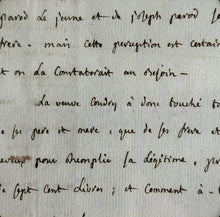 parod Le jeune et de joseph parod
frere. mais cette perception est certain
et on La Constaterait au Besoin —
La veuve Coudry a donc touché
se ses pere et mere, que de ses frere et
pour Remplie sa Légitime,
sept Cent Livres; et Comment a